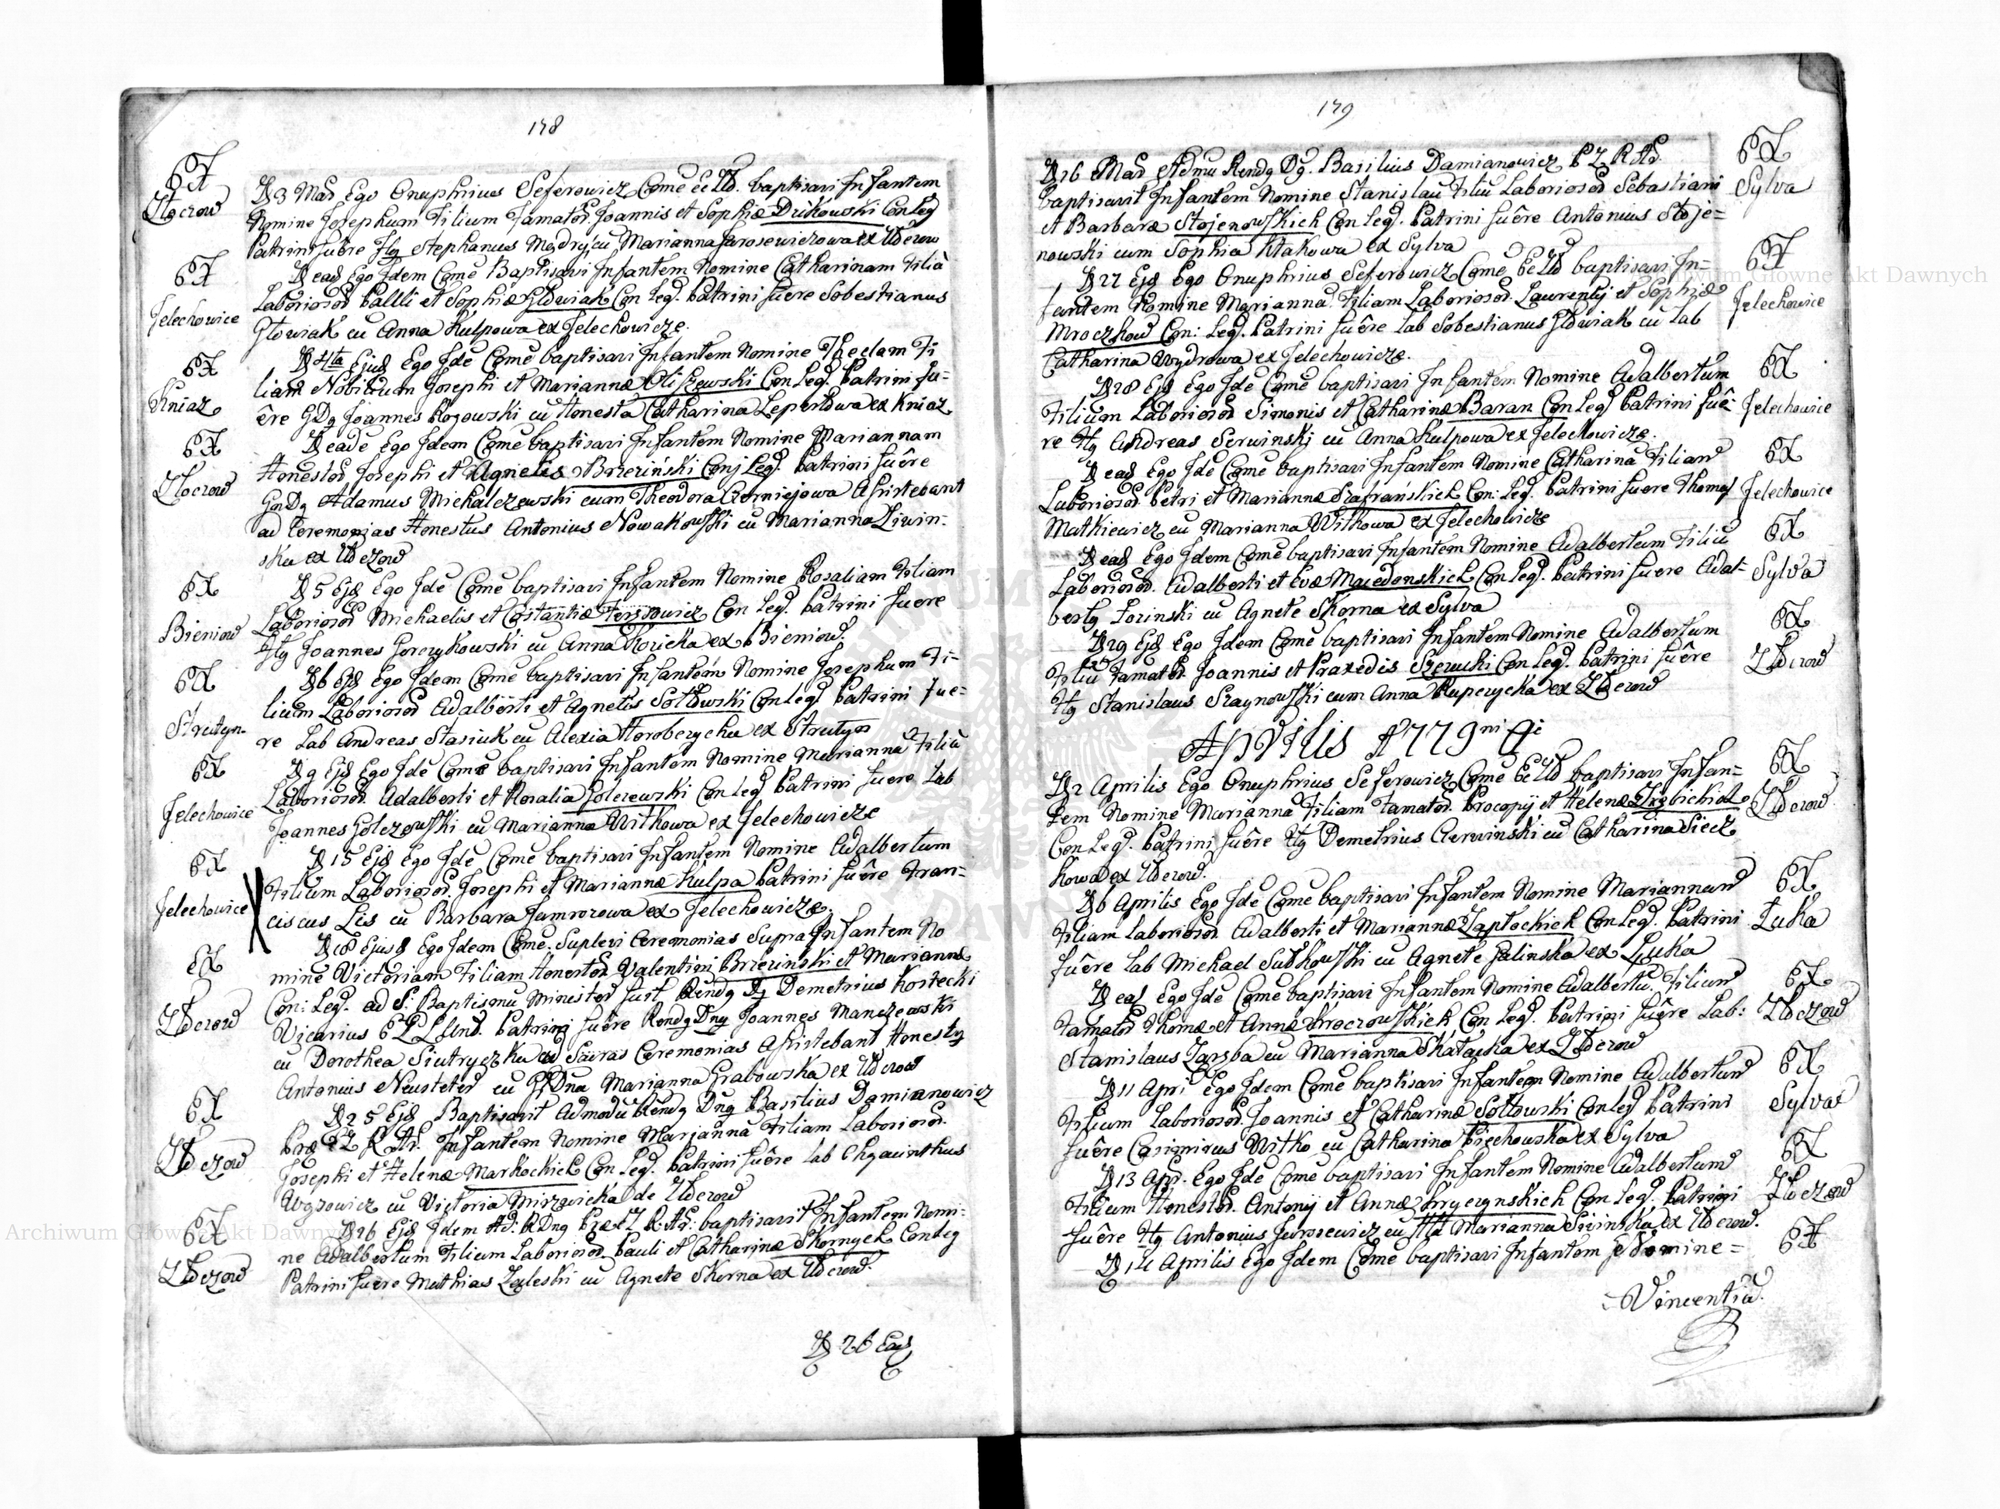 178
Złoczow
D 3 Mar Ego Onuphrius Seferowicz Come baptisavi Infantem
Nomine Josephum Filium Famator Joannis et Sophiæ Dzikowski Con Leg
Patrini fuêre Stephanus Mądry cu Marianna Jarosewiczowa ex Złoczow
Jelechowice
D ead Ego Idem Come Baptisavi Infantem Nomine Catharinam Filiã
Laborioso Pauli et Sophiæ Głowiak Con Leg. Patrini fuere Sobestianus
Głowiak cu Anna Kulpowa ex Jelechowicze.
Kniaz
D 4ta Ejus Ego Ide Come baptisavi Infantem Nomine Theclam Fi
liam Nobilium Josephi et Mariannæ Oliszewski Con Leg Patrini fu-
êre GD Joannes Rozowski cu Honesta Catharina Leperłowa ex Kniaz
Złoczow
D eadê Ego Idem Come baptisavi Infantem Nomine Mariannam
Honestor Josephi et Agnetis Brzezinski Conj Leg. Patrini fuêre
Adamus Michalczewski cum Theodora Czerniejowa Assistebant
ad Ceremonias Honestus Antonius Nowakowski cu Marianna Liwin-
ska ex Złoczow
Bieniow
D 5 Ejs Ego Idê Come baptisavi Infantem Nomine Rosaliam Filiam
Laborioso Michaelis et Constantiæ Con Leg. Patrini fuere
Joannes Gorczykowski cu Anna Kozicka ex Bieniow.
Strutyn
D 6 Ejs Ego Idem Come baptisavi Infantem Nomine Josephum Fi-
lium Laborioso Adalberti et Agnetis Sołtowski Con Leg Patrini fue-
re Lab Andreas Stasiuk cu Alexia Horobczycha ex Strutyn
Jelechowice
D 9 Ejs Ego Idê Come baptisavi Infantem Nomine Marianna Filiã
Laborioso Adalberti et Rosalia Golczewski Con Leg Patrini fuere Lab
Joannes Golczewski cu Marianna Witkowa ex Jelechowicze
Jelechowice
D 15 Ejs Ego Idê Come baptisavi Infantem Nomine Adalbertum
Filium Laborioso Josephi et Mariannæ Kulpa Patrini fuêre Fran-
ciscus Lis cu Barbara Jamrozowa ex Jelechowicze.
Złoczow
D 18 Ejus Ego Idem Come Suplevi Ceremonias Supra Infantem No
mine Victoriam Filiam Honestor Valentini Brzezinski et Mariannæ
Con: Leg. ad S: Baptismu Minister fuit Rend Demetrius Kostecki
Vicarius Patrini fuêre Rend Dng Joannes Manczewski
cu Dorothea ad Sacras Ceremonias Assistebant Honesty
Antonius Neusteter cu Dna Marianna Grabowska ex Złoczow
Złoczow
D 25 Ejs Baptisavit Admodũ Rend Dng Basilius Damianowicz
Infantem Nomine Marianna Filiam Laborioso
Josephi et Helenæ Markockich Con Leg. Patrini fuêre Lab Chyacinthus
Wąsowicz cu Victoria de Złoczow
Złoczow
D 26 Ejs Idem baptisavit Infantem Nomi-
ne Adalbertum Filium Laborioso Pauli et Catharinæ Skornych Conleg
Patrini fuere Mathias Zaleski cu Agnete Skorna ex Złoczow.
D 26 Ead
179
Sylva
D 26 Mar Admu Rend Dg. Basilius Damianowicz
baptisavit Infantem Nomine Stanislau Filiu Laborioso Sebastiani
et Barbaræ Stojenowskich Con Leg. Patrini fuêre Antonius Stoje=
nowski cum Sophia Ktakowa ex Sylva
Jelechowice
D 27 Ejs Ego Onuphrius Seferowicz Come baptisavi In-
fantem Nomine Marianna Filiam Laborioso Laurentij et Sophiæ
Mroczkow Con: Leg. Patrini fuêre Lab Sobestianus Głowiak cu Lab
Catharina Wydrowa ex Jelechowicze.
Jelechowice
D 28 Ejs Ego Idê Come baptisavi Infantem Nomine Adalbertum
Filium Laborioso Simonis et Catharinæ Baran Con Leg Patrini fuê-
re Andreas Serwinski cu Anna Kulpowa ex Jelechowicze.
Jelechowice
D ead Ego Idê Come baptisavi Infantem Nomine Catharina Filiam
Laborioso Petri et Mariannæ Szafrańskich Con: Leg. Patrini fuere Thomas
Matkiewicz cu Marianna Witkowa ex Jelechowicze
Sylva
D ead Ego Idem Come baptisavi Infantem Nomine Adalbertum Filiu
Laborioso. Adalberti et Evæ Macedonskich Con Leg. Patrini fuere Adal-
bertg Łozinski cu Agnete Skorna ex Sylva
Złoczow
D 29 Ejs Ego Idem Come baptisavi Infantem Nomine Adalbertum
Filiu Famator Joannis et Praxedis Szewcki Con Leg. Patrini fuêre
Stanislaus Szaynowski cum Anna Kuperycka ex Złoczow
Aprilis A 1779
Złoczow
D 2 Aprilis Ego Onuphrius Seferowicz Come baptisavi Infan=
tem Nomine Marianna Filiam Famator. Procopij et Helenæ
Con Leg. Patrini fuêre Demetrius Czerwinski cu Catharina Siecz
kowa ex Złoczow.
Łuka
D 6 Aprilis Ego Idê Come baptisavi Infantem Nomine Mariannam
Filiam Laborioso Adalberti et Mariannæ Zapłockich Con Leg. Patrini
fuêre Lab Michael Sutkowski cu Agnete Galinska ex Łuka
Złoczow
D ead Ego Idê Come baptisavi Infantem Nomine Adalbertu Filium
Famator Thomæ et Annæ Mroczowskich Con Leg. Patrini fuêre Lab:
Stanislaus Zaręba cu Marianna Skałacka ex Złoczow
Sylva
D 11 Apri Ego Idem Come baptisavi Infantem Nomine Adalbertum
Filium Laborioso. Joannis et Catharinæ Sołtowski Con Leg Patrini
fuêre Casimirus Witko cu Catharina Piechowska ex Sylva
Złoczow
D 13 Apr. Ego Idê Come baptisavi Infantem Nomine Adalbertum
Filium Honestor. Antonij et Annæ Con Leg. Patrini
fuêre Antonius Jarosewicz cu Marianna Siwinska ex Złoczow.
D 14 Aprilis Ego Idem Come baptisavi Infantem Nomine =
= Vincentiu.
Archiwum Główne Akt Dawnych
Archiwum Główne Akt Dawnych